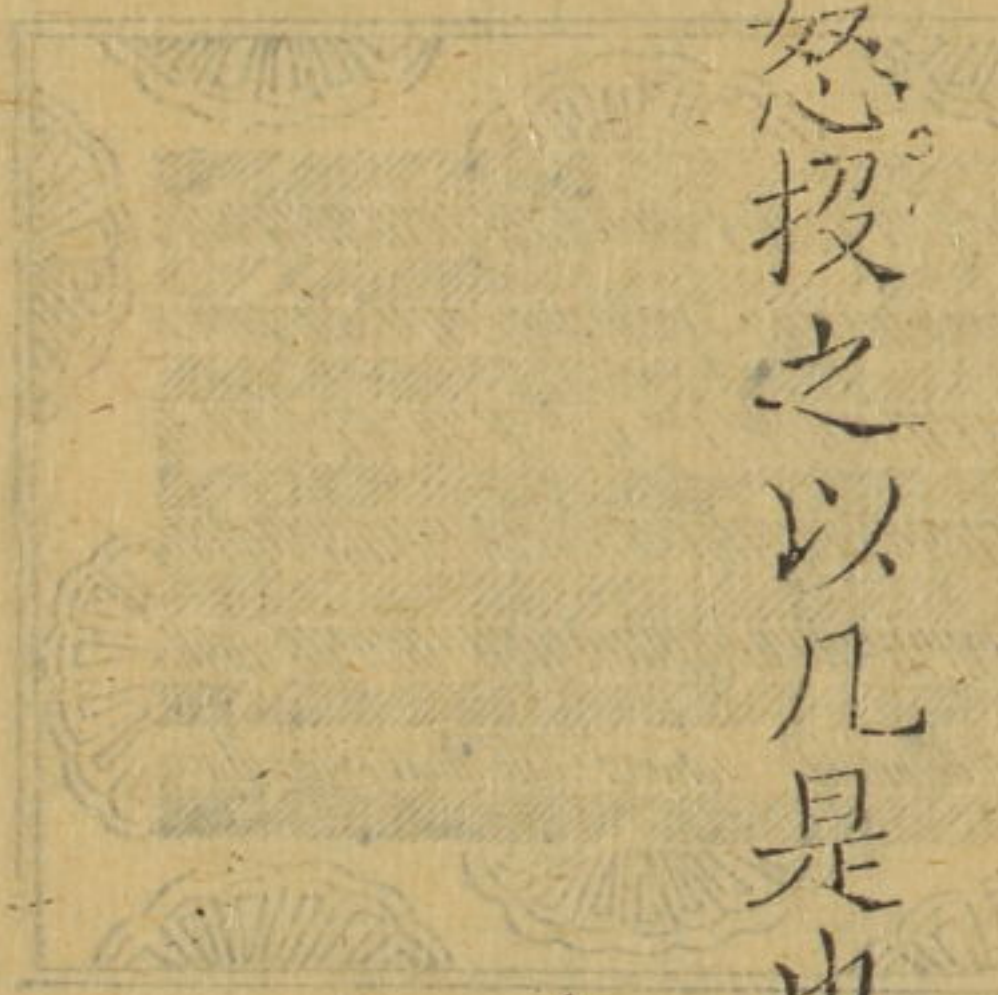 怒投之以几是也